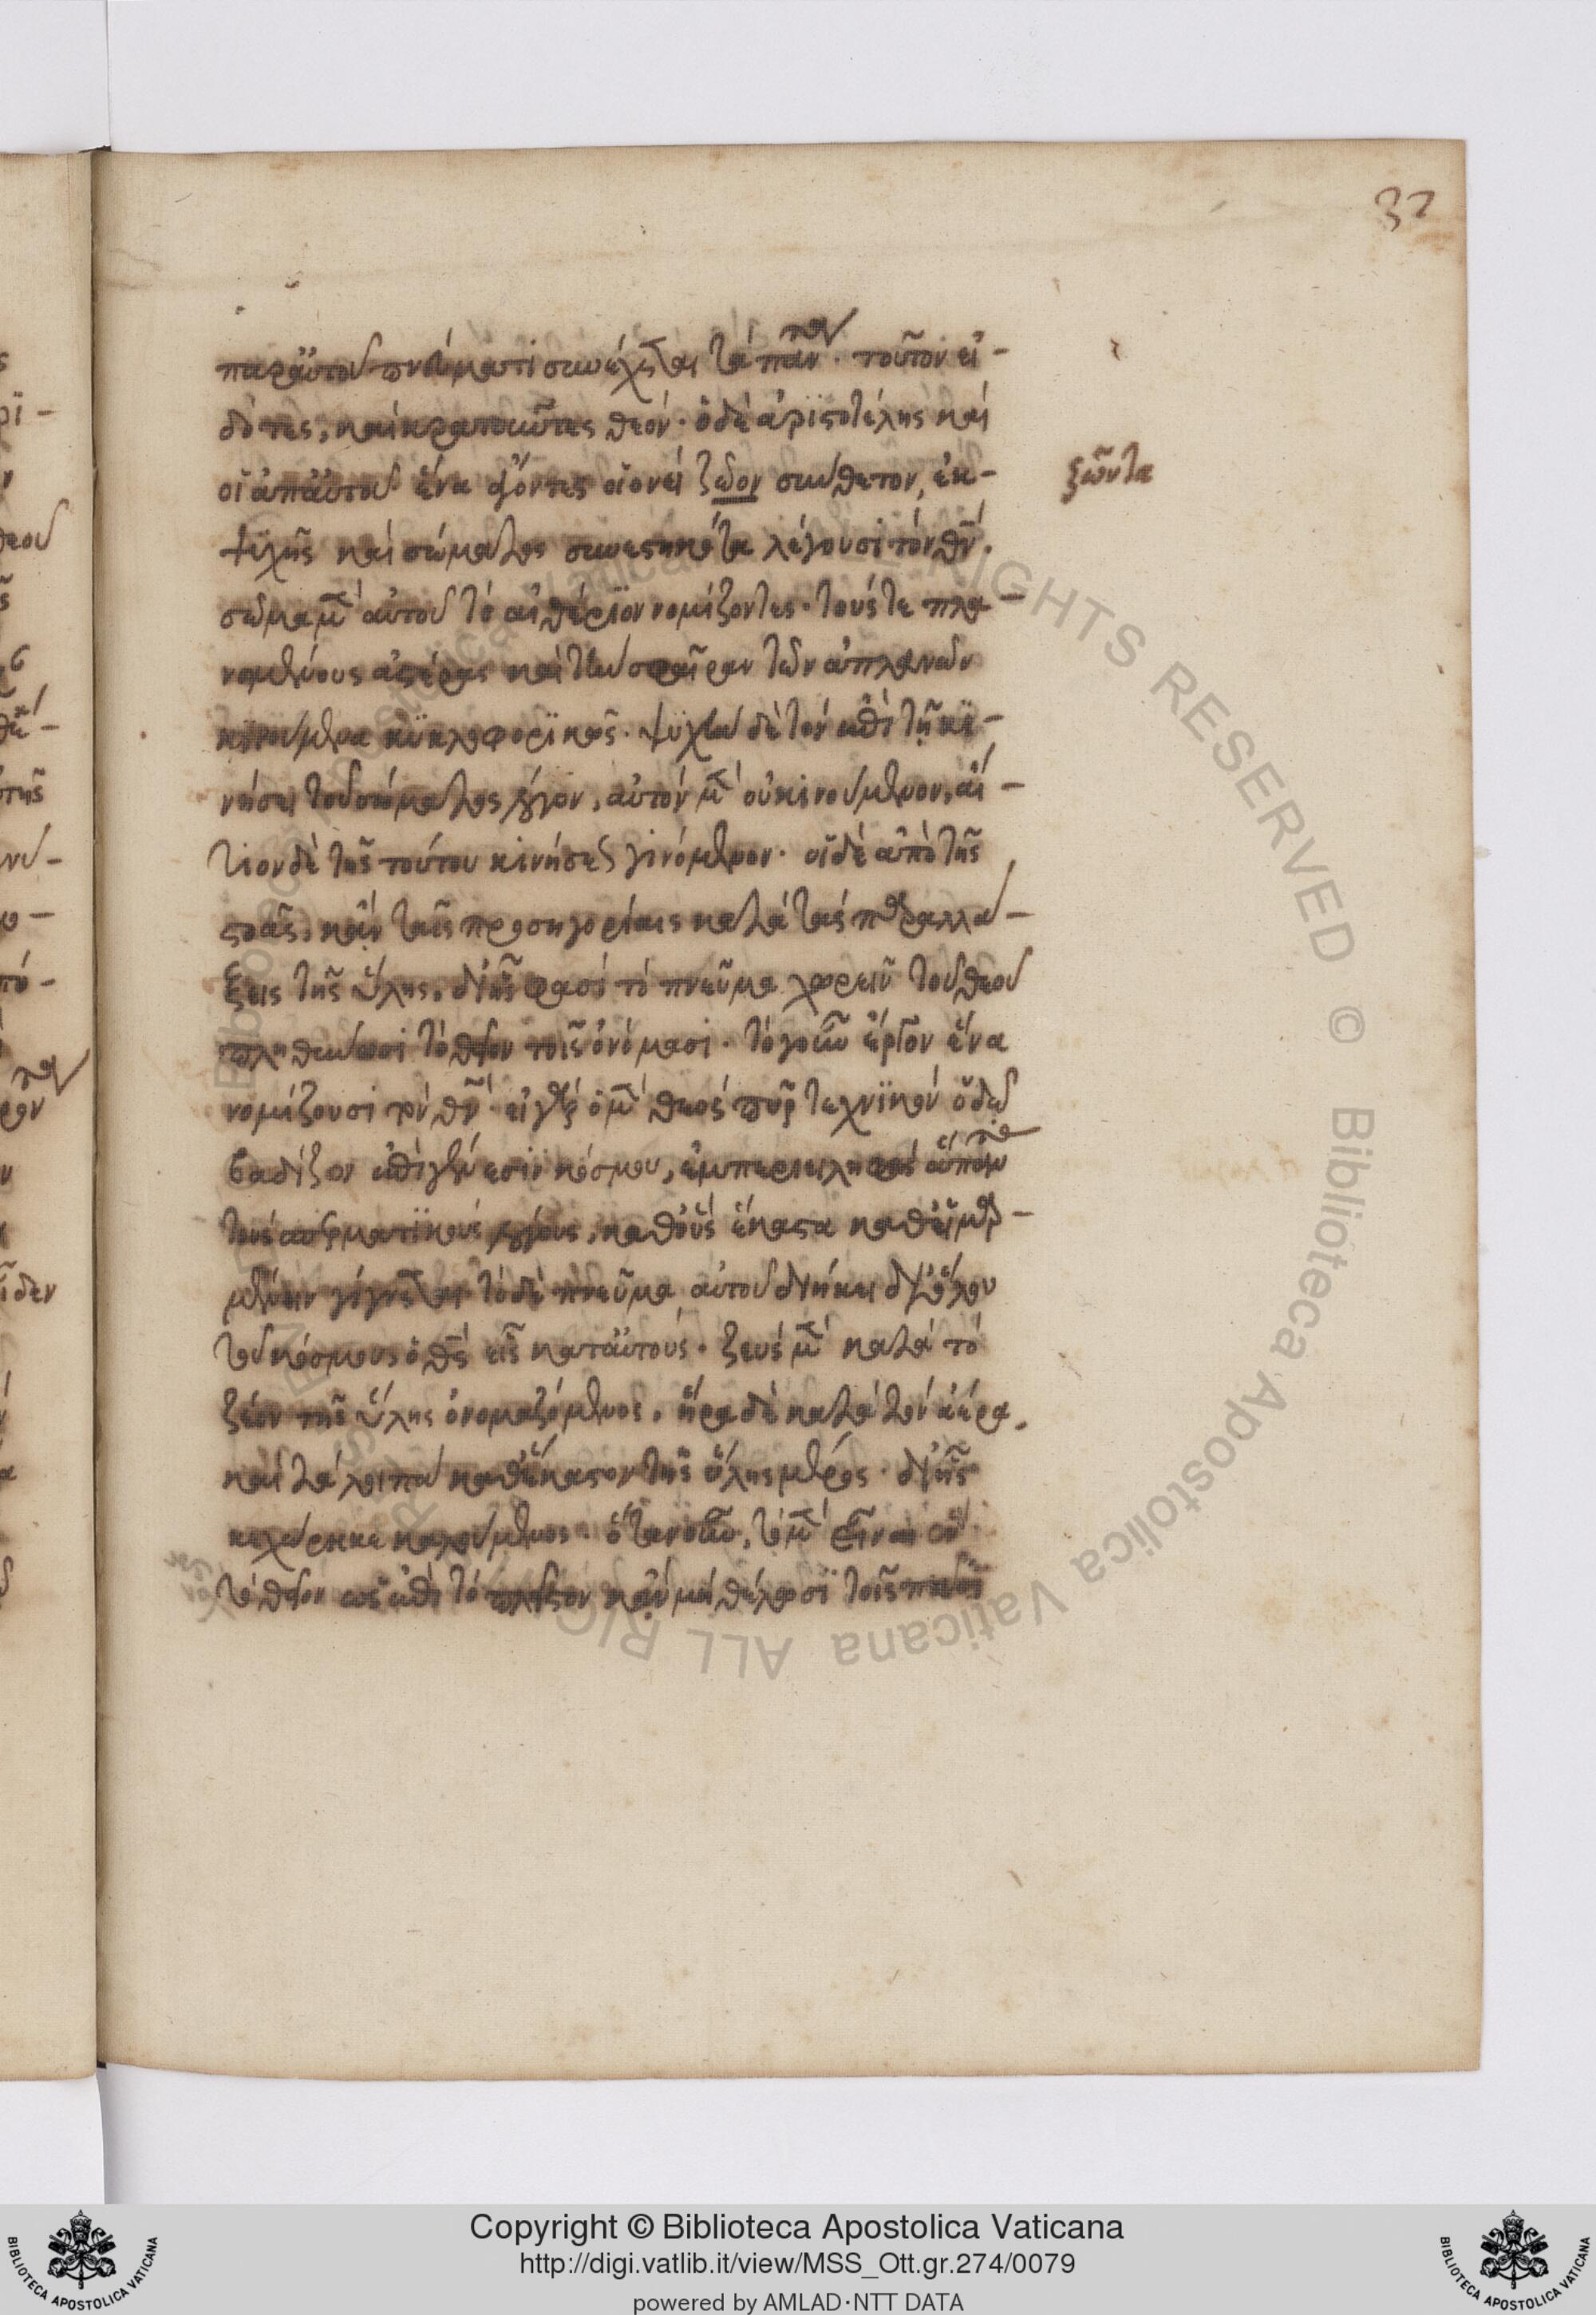 32
παρ' αὐτοῦ πνεύματι συνέχεται τὰ πάντα· τοῦτον εἰ-
δότες, καὶ κρατοῦντες θεόν· ὁ δὲ ἀριστοτέλης καὶ
οἱ ἀπ' αὐτοῦ ἕνα ἄγοντες οἱονεὶ ζῶον σύνθετον, ἐκ
ζῶντα
ψυχῆς καὶ σώματος συνεστηκότα λέγουσι τὸν θν·
σῶμα μὲν αὐτοῦ τὸ αἰθέριον νομίζοντες· τούς τε πλα-
νωμένους ἀστέρας καὶ τὴν σφαῖραν τῶν ἀπλανῶν
κινούμενα κυκλοφορικῶς· ψυχὴν δὲ τὸν ἐπὶ τῇ κι-
νήσει τοῦ σώματος λόγον, αὐτὸν μὲν οὐ κινούμενον, αἴ-
τιον δὲ τῆς τούτου κινήσεως γινόμενον· οἱ δὲ ἀπὸ τῆς
στοᾶς, κἂν ταῖς προσηγορίαις κατὰ τὰς παραλλά-
ξεις τῆς ὕλης, δι' ἧς φασὶ τὸ πνεῦμα χωρεῖν τοῦ θεοῦ
πληθύνωσι τὸ θεῖον τοῖς ὀνόμασι· τὸ γοῦν ἔργον ἕνα
νομίζουσι τὸν θν· εἰ γὰρ ὁ μὲν θεὸς πῦρ τεχνικὸν ὁδῷ
βαδίζον ἐπὶ γενέσιν κόσμου, ἐμπεριειληφὸς ἅπαντας
τοὺς σπερματικοὺς λόγους, καθ' οὓς ἕκαστα καθ' εἱμαρ-
μένην γίγνεται τὸ δὲ πνεῦμα αὐτοῦ διήκει δι' ὅλου
τοῦ κόσμου, ὁ θς εἷς κατ' αὐτούς· ζεὺς μὲν κατὰ τὸ
ζέον τῆς ὕλης ὀνομαζόμενος, ἥρα δὲ κατὰ τὸν ἀέρα,
καὶ τὰ λοιπὰ καθ' ἕκαστον τῆς ὕλης μέρος· δι' ἧς
κεχώρηκε καλούμενος· ὅταν οὖν, τὸ μὲν εἶναι ἓν
τὸ θεῖον ὡς ἐπὶ τὸ πλεῖστον κἂν μὴ θέλωσι τοῖς πᾶσι
Copyright © Biblioteca Apostolica Vaticana
http://digi.vatlib.it/view/MSS_Ott.gr.274/0079
powered by AMLAD·NTT DATA
BIBLIOTECA APOSTOLICA VATICANA
BIBLIOTECA APOSTOLICA VATICANA